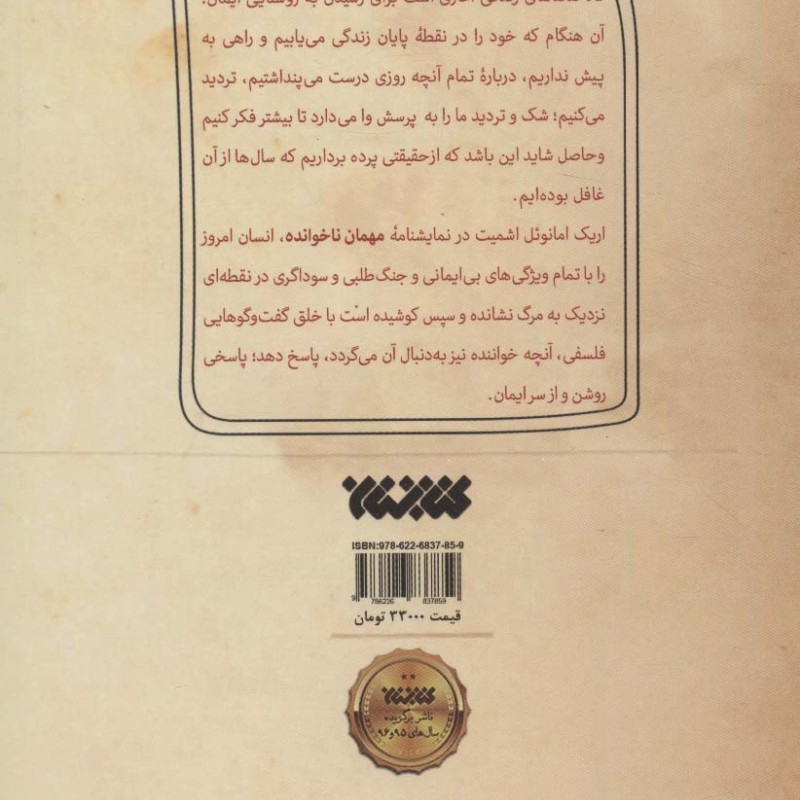 زندگی آغازی است برای رسیدن به روشنایی ایمان.
آن هنگام که خود را در نقطهٔ پایان زندگی می‌یابیم و راهی به
پیش نداریم، دربارهٔ تمام آنچه روزی درست می‌پنداشتیم، تردید
می‌کنیم؛ شک و تردید ما را به پرسش وا می‌دارد تا بیشتر فکر کنیم
وحاصل شاید این باشد که ازحقیقتی پرده برداریم که سال‌ها از آن
غافل بوده‌ایم.
اریک امانوئل اشمیت در نمایشنامهٔ مهمان ناخوانده، انسان امروز
را با تمام ویژگی‌های بی‌ایمانی و جنگ‌طلبی و سوداگری در نقطه‌ای
نزدیک به مرگ نشانده و سپس کوشیده است با خلق گفت‌وگوهایی
فلسفی، آنچه خواننده نیز به‌دنبال آن می‌گردد، پاسخ دهد؛ پاسخی
روشن و از سر ایمان.
کتابستان
ISBN:978-622-6837-85-9
9 786226 837859
قیمت ۳۳۰۰۰ تومان
کتابستان
ناشر برگزیده
سال‌های ۹۵ و ۹۶